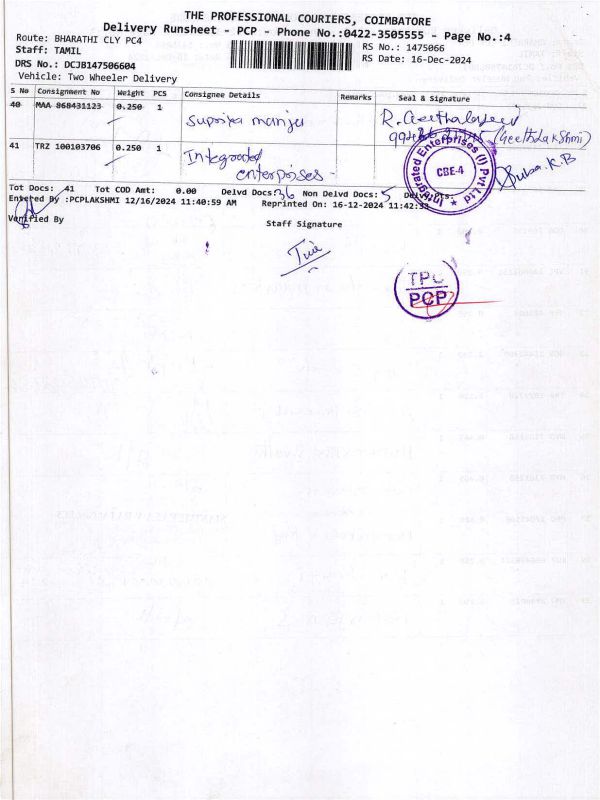 THE PROFESSIONAL COURIERS, COIMBATORE
Delivery Runsheet - PCP - Phone No.:0422-3505555 - Page No.:4
Route: BHARATHI CLY PC4
RS No.: 1475066
Staff: TAMIL
RS Date: 16-Dec-2024
DRS No.: DCJB147506604
Vehicle: Two Wheeler Delivery
S No Consignment No Weight PCS Consignee Details Remarks Seal & Signature
40 MAA 868431123 0.250 1 Supriya manju R.
(Geethalakshmi)
41 TRZ 100103706 0.250 1 Integrated enterprises - K.B
Integrated Enterprises (I) Pvt Ltd
CBE-4
Tot Docs: 41 Tot COD Amt: 0.00 Delvd Docs: 36 Non Delvd Docs: 5
Entered By :PCPLAKSHMI 12/16/2024 11:40:59 AM Reprinted On: 16-12-2024 11:42:33
Verified By
Staff Signature
TPC
PCP